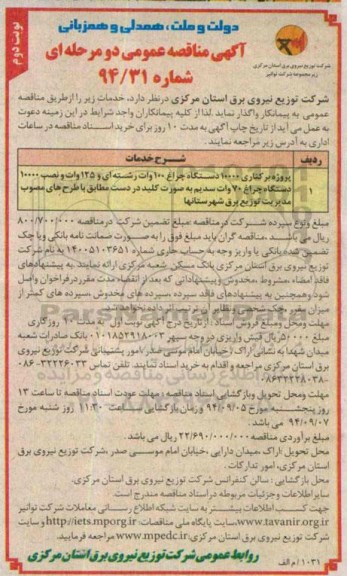 نوبت دوم
دولت و ملت، همدلی و همزبانی
آگهی مناقصه عمومی دو مرحله ای
شماره ۹۴/۳۱
شرکت توزیع نیروی برق استان مرکزی
زیر مجموعه شرکت توانیر
شرکت توزیع نیروی برق استان مرکزی درنظر دارد، خدمات زیر را ازطریق مناقصه
عمومی به پیمانکار واگذار نماید. لذا از کلیه پیمانکاران واجد شرایط در این زمینه دعوت
به عمل می آید از تاریخ چاپ آگهی به مدت ۱۰ روز برای خرید اسناد مناقصه در ساعات
اداری به آدرس زیر مراجعه نمایند.
ردیف شرح خدمات
۱ پروژه برکناری ۱۰۰۰۰ دستگاه چراغ ۱۰۰ وات رشته ای و ۱۲۵ وات و نصب ۱۰۰۰۰
دستگاه چراغ ۷۰ وات سدیم به صورت کلید در دست مطابق با طرح های مصوب
مدیریت توزیع برق شهرستانها
مبلغ ونوع سپرده شرکت در مناقصه: مبلغ تضمین شرکت در مناقصه ۸۰۰/۷۰۰/۰۰۰
ریال می باشد. مناقصه گران باید مبلغ فوق را به صورت ضمانت نامه بانکی ویا چک
تضمین شده بانکی یا واریز وجه به حساب جاری شماره ۱۴۰۰۵۱۰۳۶۵۱ به نام شرکت
توزیع نیروی برق استان مرکزی بانک مسکن شعبه مرکزی ارائه نمایند. به پیشنهادهای
فاقد امضاء، مشروط، مخدوش وپیشنهاداتی که بعد از انقضاء مدت مقرر درفراخوان واصل
شود وهمچنین به پیشنهادهای فاقد سپرده، سپرده های مخدوش، سپرده های کمتر از
میزان مقرر، چک شخصی ونظایر آن
مهلت ومحل ومبلغ فروش اسناد: از تاریخ درج آگهی نوبت اول به مدت ۱۰ روز کاری
مبلغ ۵۰۰/۰۰۰ ریال فیش واریزی در وجه سپهر ۰۱۰۱۸۵۲۹۱۸۰۰۳ بانک صادرات شعبه
میدان شهدا به نشانی اراک، خیابان امام موسی صدر، امور پشتیبانی شرکت توزیع نیروی
برق استان مرکزی مراجعه و اقدام به خرید اسناد نمایند. تلفن تماس
مهلت ومحل تحویل وبازگشایی اسناد مناقصه: مهلت عودت اسناد مناقصه تا ساعت ۱۳
روز پنجشنبه مورخ ۹۴/۰۹/۰۵ و زمان بازگشایی ساعت ۱۱:۳۰ روز شنبه مورخ
۹۴/۰۹/۰۷ می باشد.
مبلغ برآوردی مناقصه ۲۲/۶۹۰/۰۰۰/۰۰۰ ریال می باشد.
محل تحویل: اراک، میدان دارایی، خیابان امام موسی صدر، شرکت توزیع نیروی برق
استان مرکزی، امور تدارکات.
محل بازگشایی: سالن کنفرانس شرکت توزیع نیروی برق استان مرکزی.
سایر اطلاعات وجزئیات مربوطه در اسناد مناقصه مندرج است.
جهت کسب اطلاعات بیشتر به سایت شبکه اطلاع رسانی معاملات شرکت توانیر
www.tavanir.org.ir، سایت پایگاه ملی مناقصات http://iets.mporg.ir و سایت
شرکت توزیع نیروی برق استان مرکزی www.mpedc.ir مراجعه فرمایید.
روابط عمومی شرکت توزیع نیروی برق استان مرکزی
۱۰۳۱ / م الف
ParsNamadData